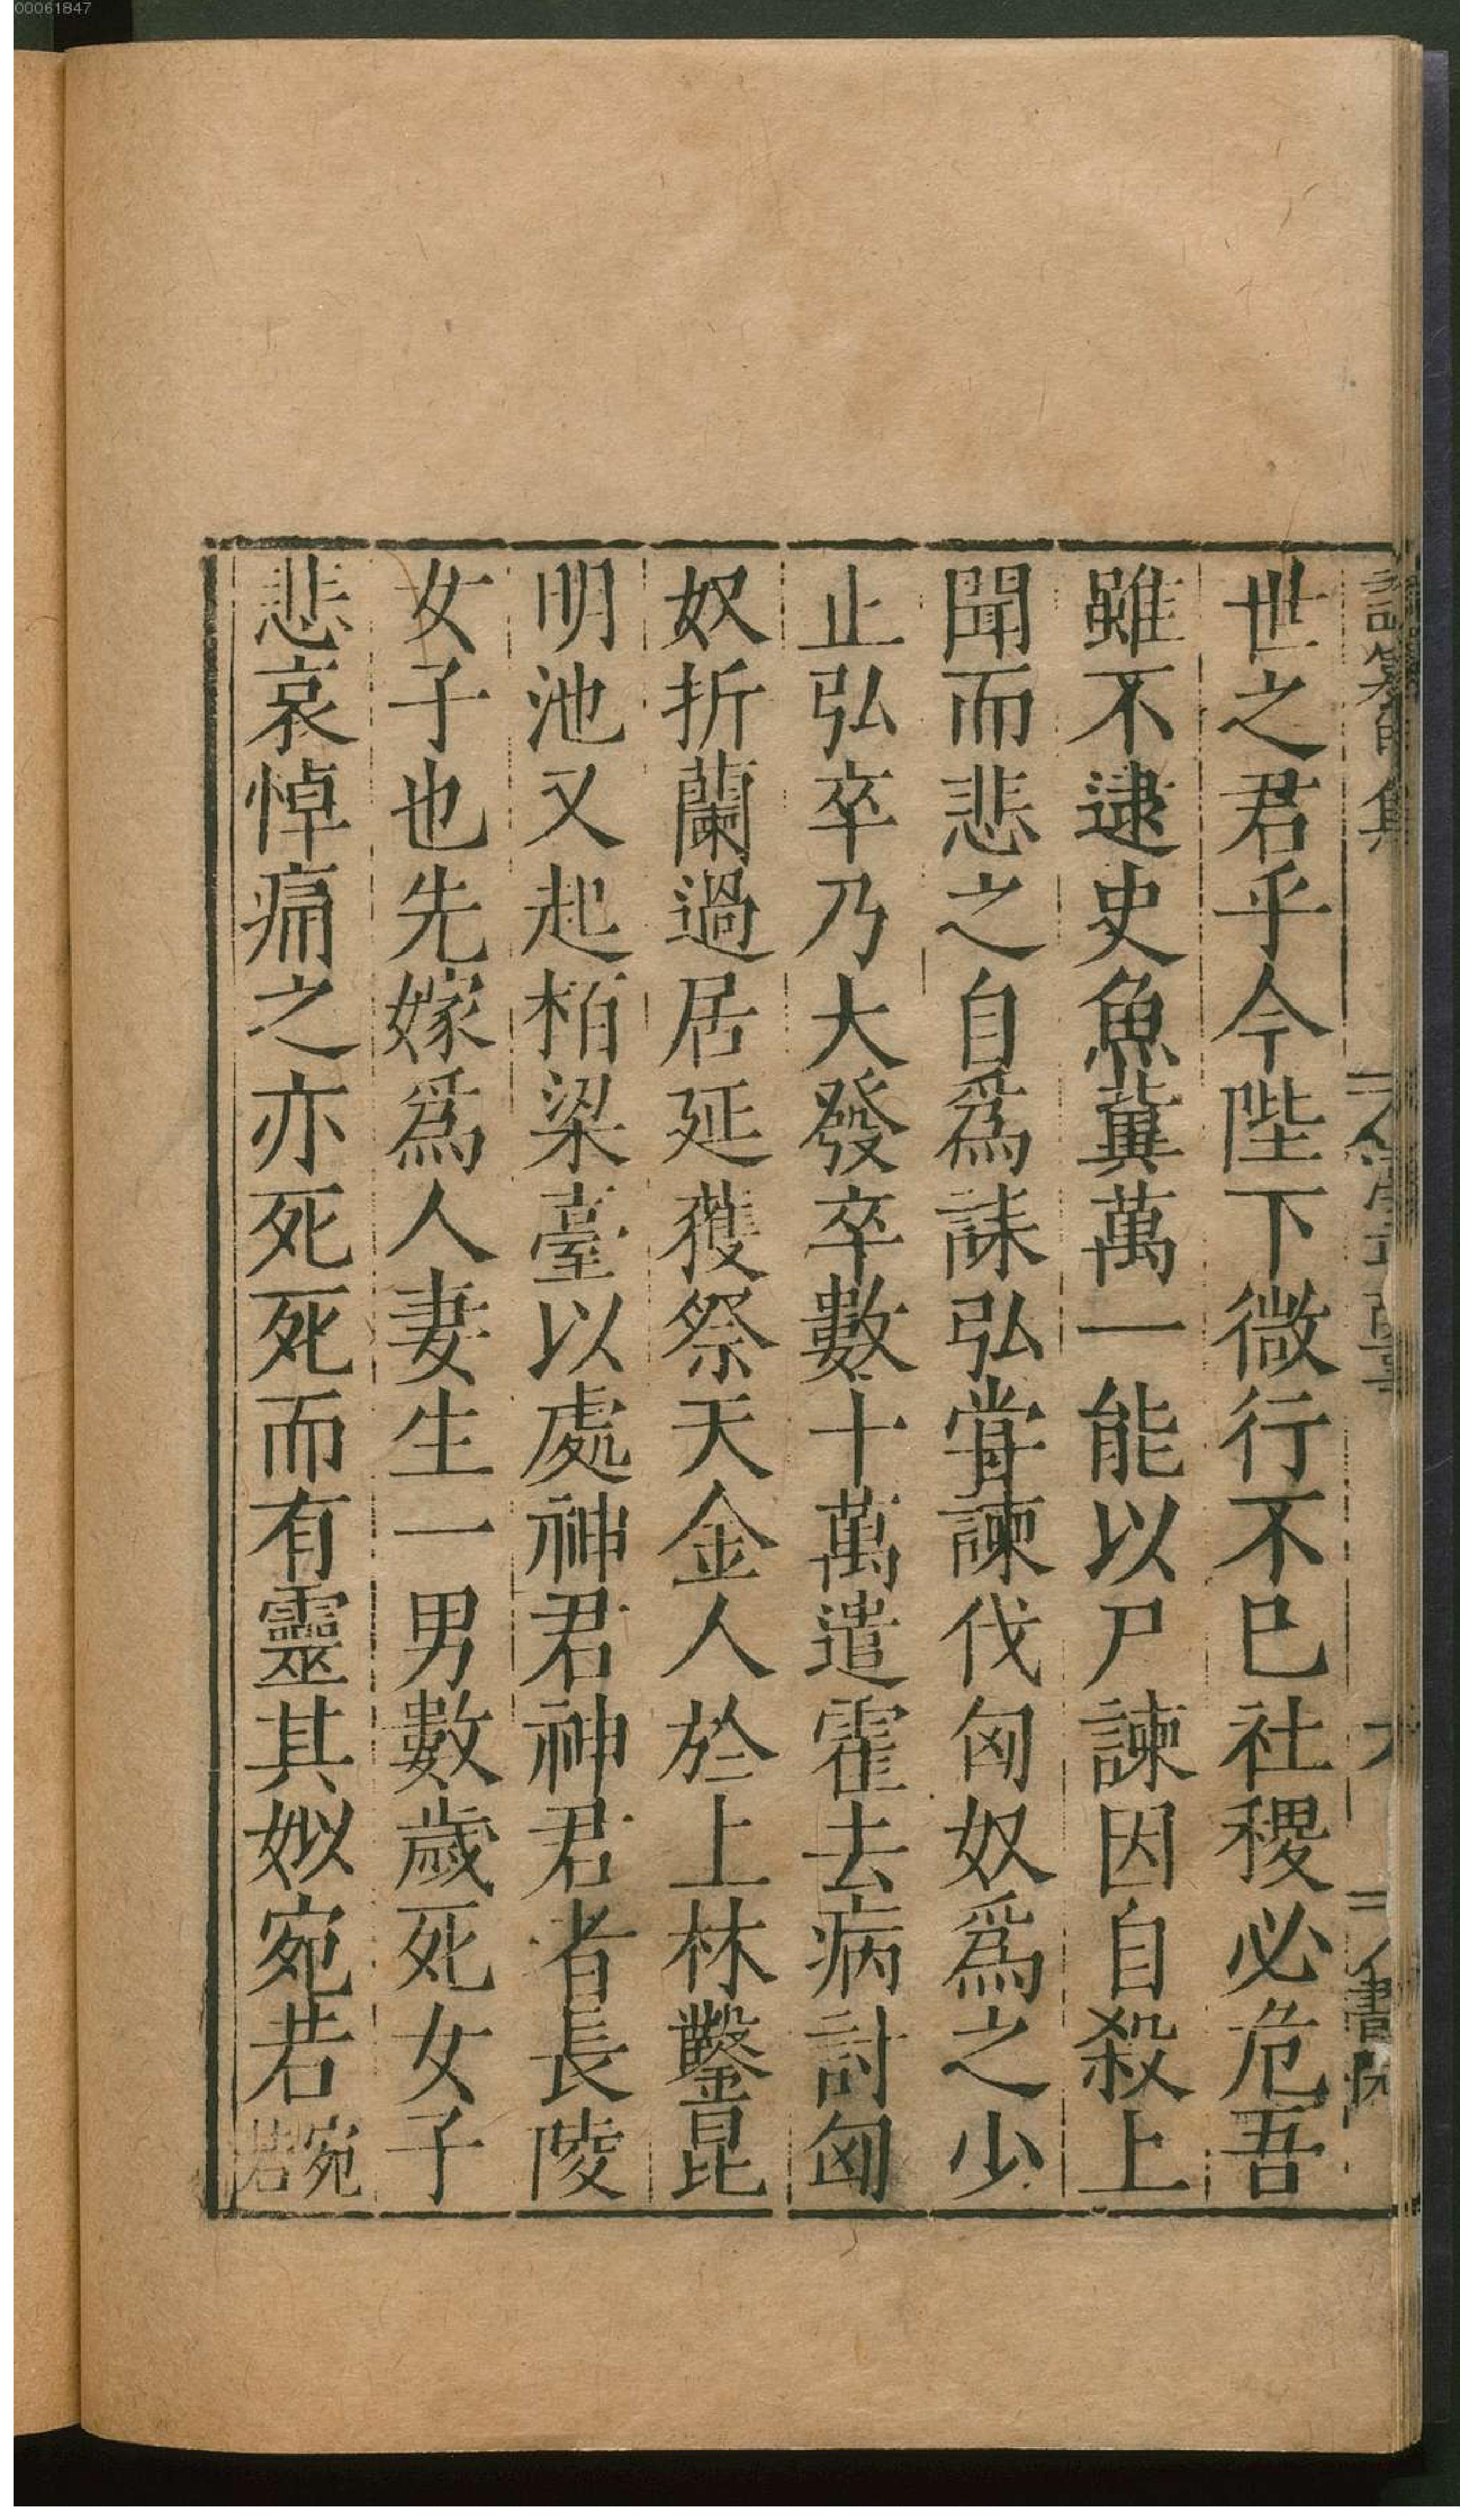 00061847
世之君乎今陛下微行不巳社稷必危吾
雖不逮史魚冀萬一能以尸諫因自殺上
聞而悲之自爲誄弘甞諫伐匈奴爲之少
止弘卒乃大發卒數十萬遣霍去病討匈
奴折蘭過居延獲祭天金人於上林鑿昆
明池又起栢梁臺以處神君神君者長陵
女子也先嫁爲人妻生一男數歲死女子
悲哀悼痛之亦死死而有靈其姒宛若宛
若